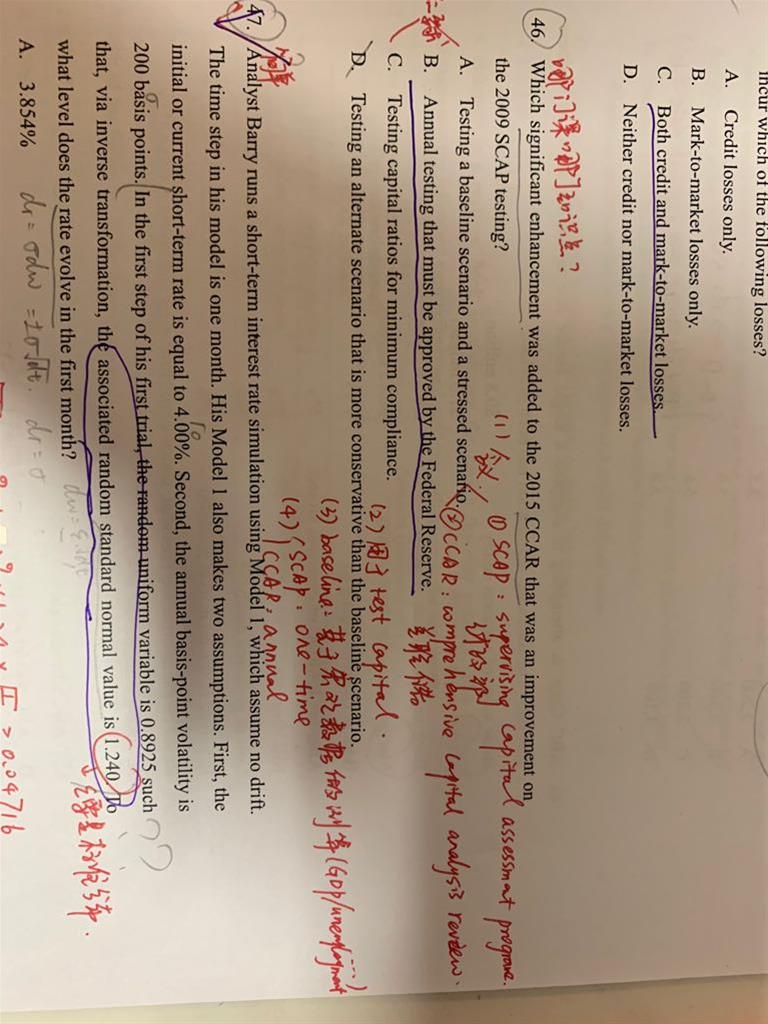 incur which of the following losses?
A. Credit losses only.
B. Mark-to-market losses only.
C. Both credit and mark-to-market losses.
D. Neither credit nor mark-to-market losses.
哪门课
46. Which significant enhancement was added to the 2015 CCAR that was an improvement on
the 2009 SCAP testing?
(1) ① SCAP: supervising capital assessment programe.
A. Testing a baseline scenario and a stressed scenario.
② CCAR: comprehensive capital analysis review.
B. Annual testing that must be approved by the Federal Reserve.
C. Testing capital ratios for minimum compliance.
(2) 用于 test capital.
D. Testing an alternate scenario that is more conservative than the baseline scenario.
(3) baseline: (GDP/unemployment ...)
(4) SCAP: one-time
CCAR: annual
47. Analyst Barry runs a short-term interest rate simulation using Model 1, which assume no drift.
The time step in his model is one month. His Model 1 also makes two assumptions. First, the
initial or current short-term rate is equal to 4.00%. Second, the annual basis-point volatility is
r₀
200 basis points. In the first step of his first trial, the random uniform variable is 0.8925 such
σ
that, via inverse transformation, the associated random standard normal value is 1.240 To
what level does the rate evolve in the first month?
A. 3.854%
dr = σdw = ±σ√dt. dr = σ